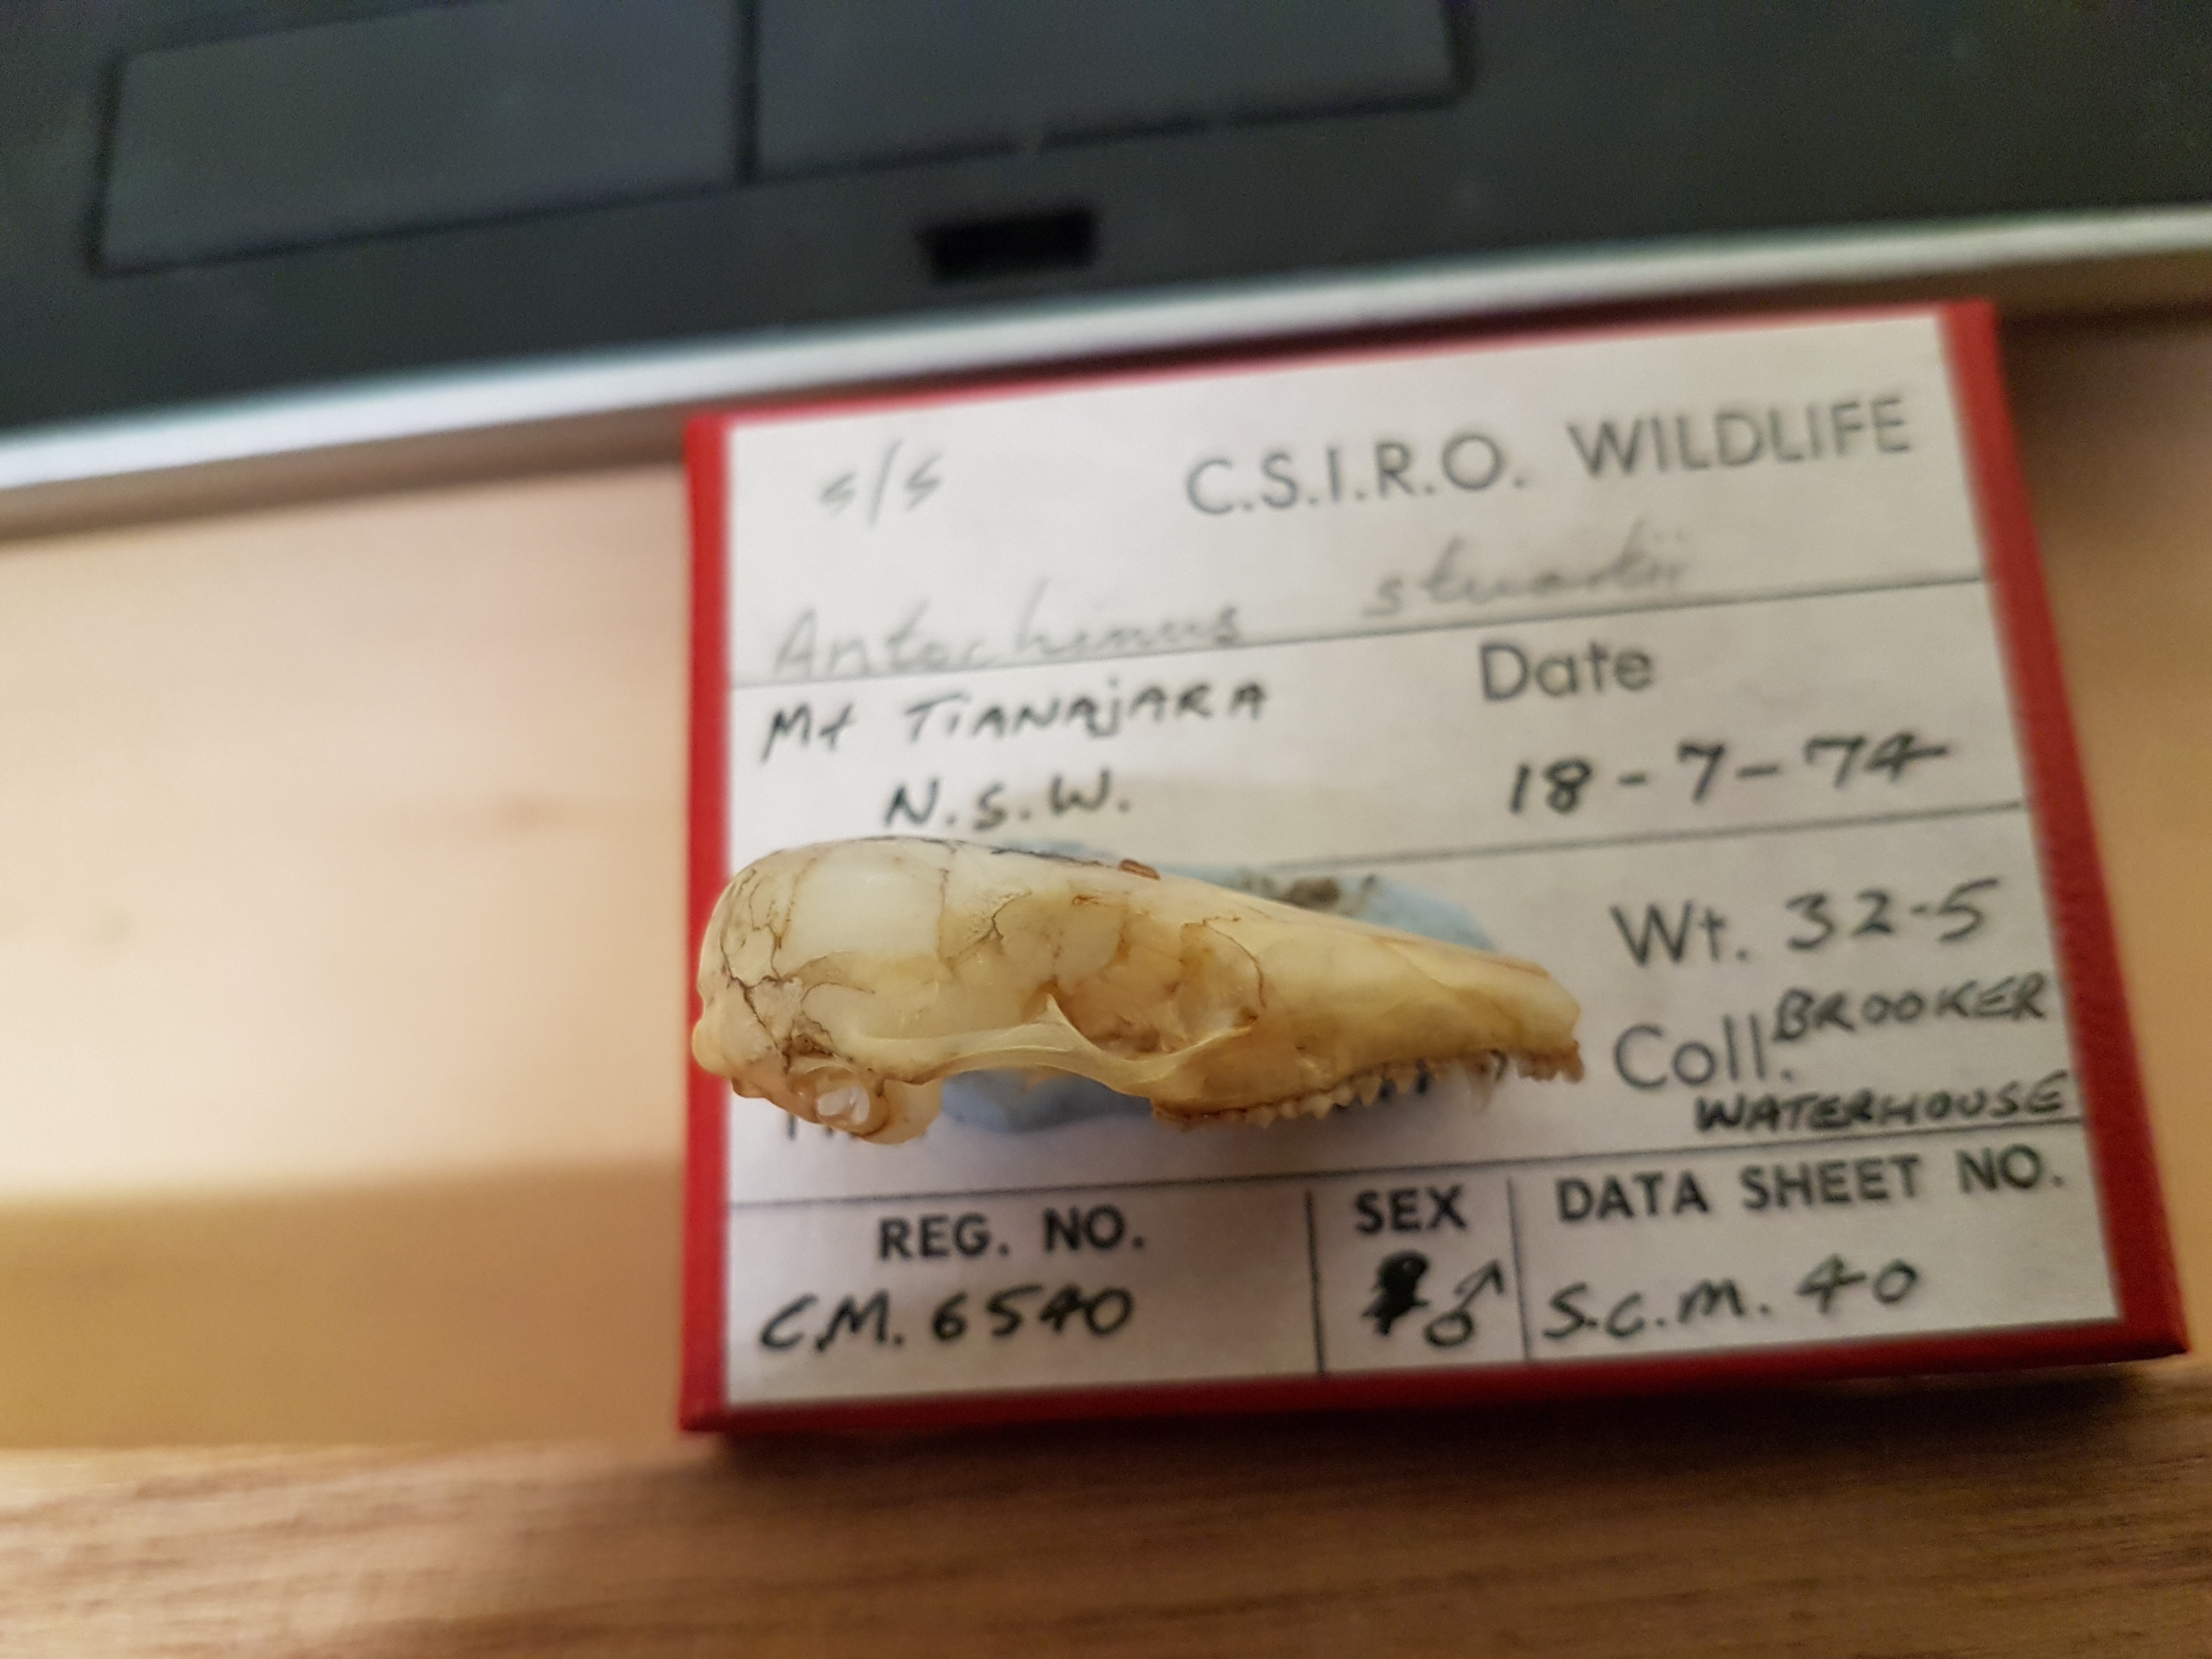 s/s C.S.I.R.O. WILDLIFE
Antechinus stuartii
Mt TiANAjARA Date
N.S.W. 18-7-74
Wt. 32-5
Coll. BROOKER
WATERHOUSE
REG. NO. SEX DATA SHEET NO.
C.M. 6540 ♂ S.C.M. 40